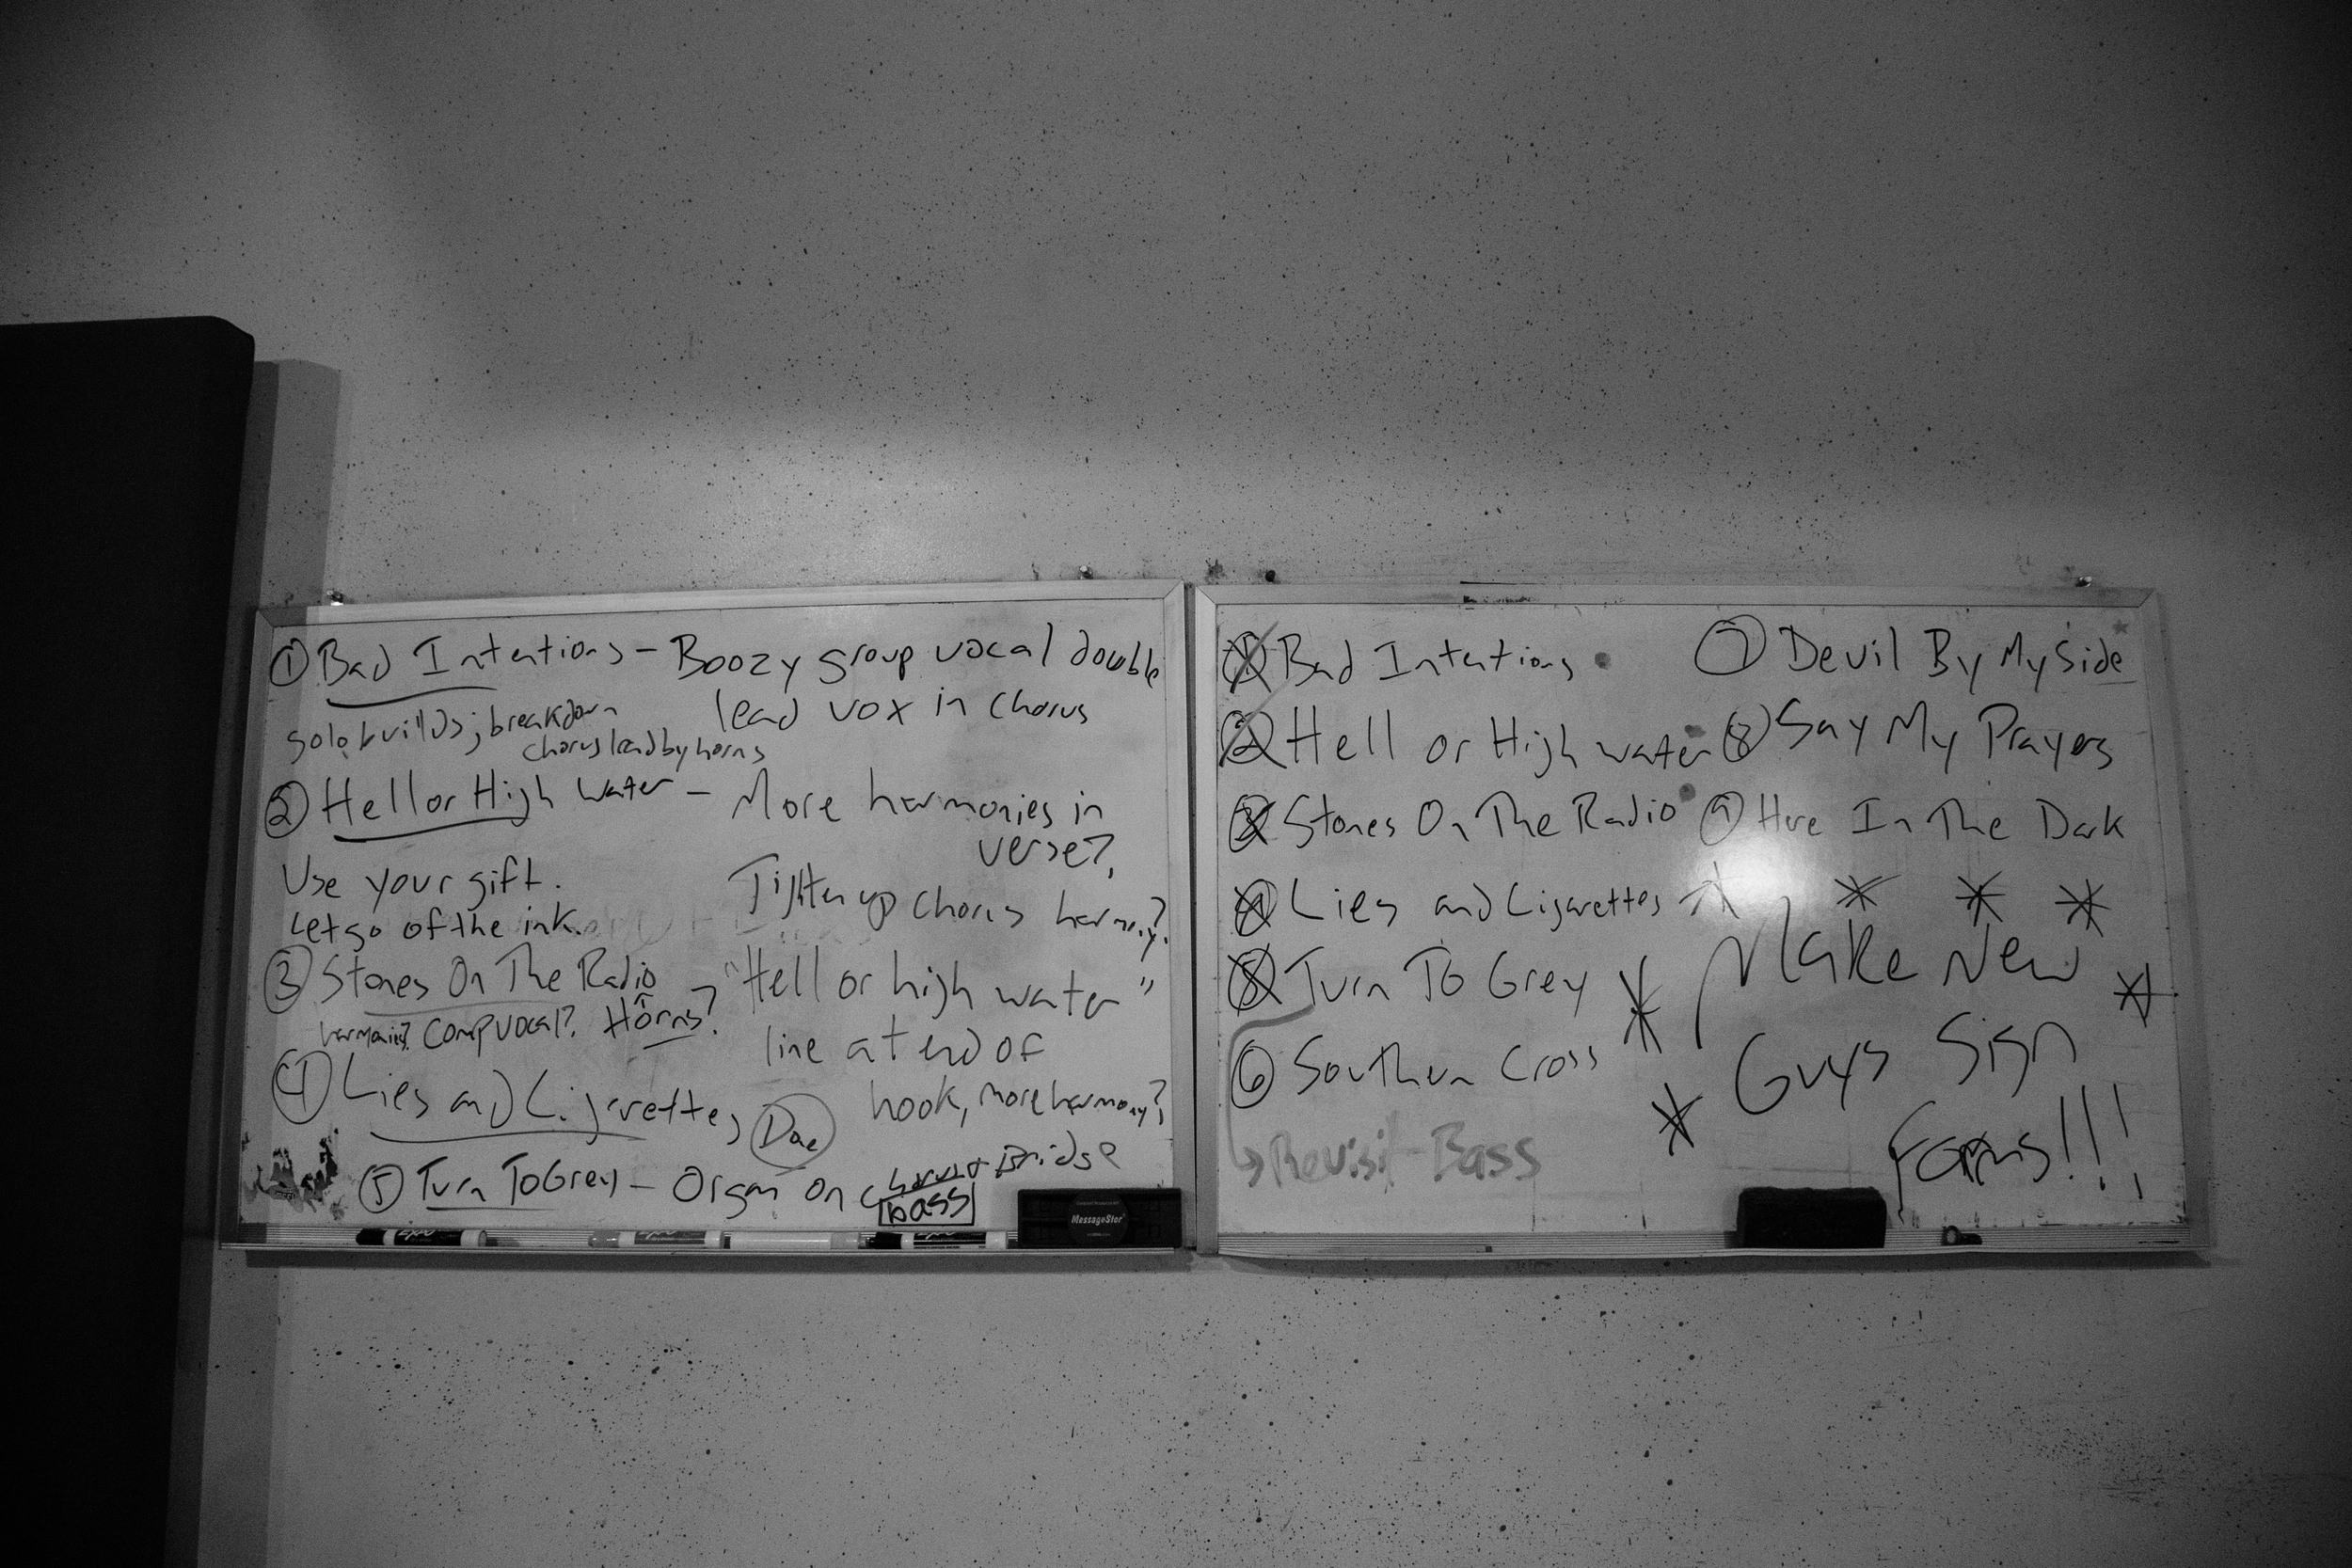 ① Bad Intentions - Boozy group vocal double
lead vox in chorus
solo builds; breakdown
chorus lead by horns
② Hell or High Water - More harmonies in
verse?
Use your gift.
Let go of the ink.
Tighten up chorus harm.?
"Hell or high water"
line at end of
hook, more harmony?
③ Stones On The Radio
harmonies? Comp vocal? Horns?
④ Lies and Cigarettes
⑤ Turn To Grey - Organ on Bridge
bass
MessageStor
① Bad Intentions
② Hell or High Water
③ Stones On The Radio
④ Lies and Cigarettes
⑤ Turn To Grey
⑥ Southern Cross
Revisit - Bass
⑦ Devil By My Side
⑧ Say My Prayers
⑨ Here In The Dark
Make New
Guys Sign
Forms!!!